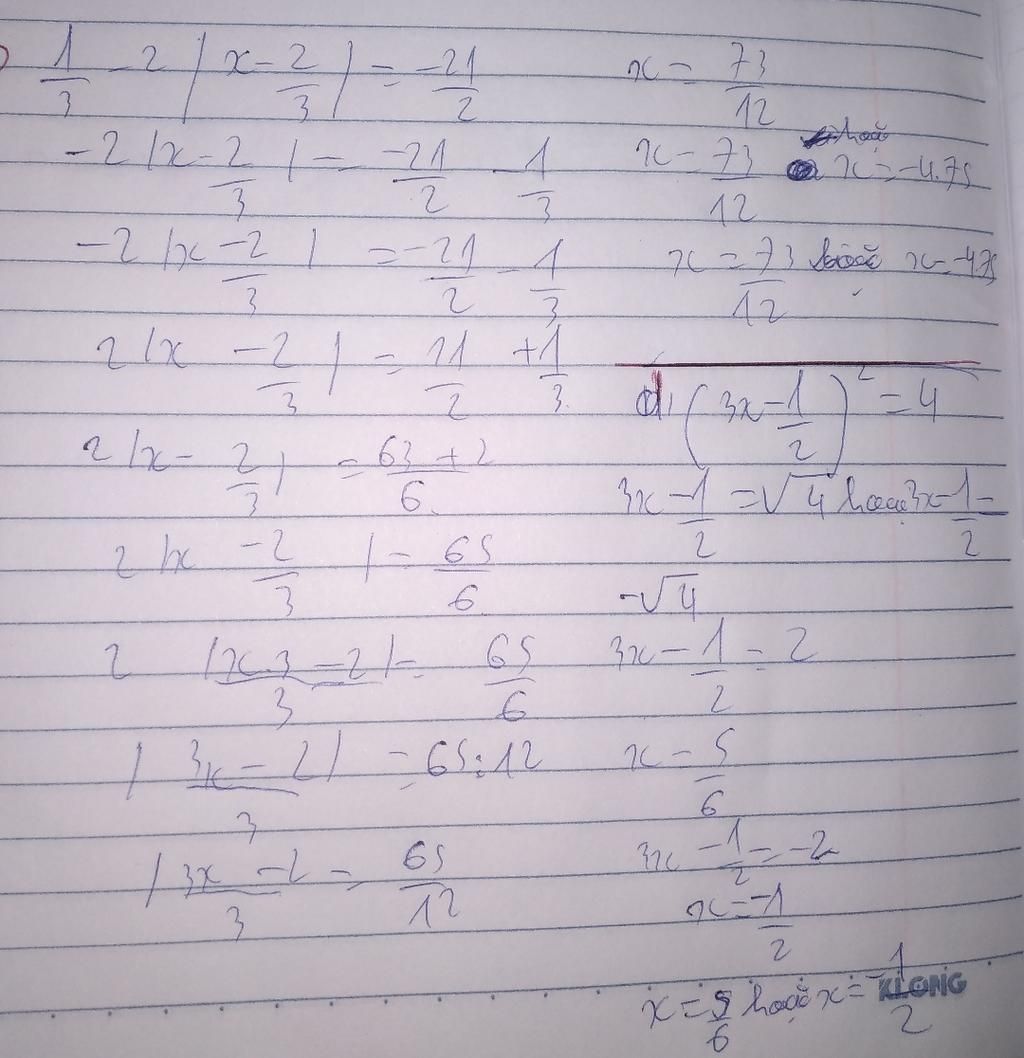 1/3 - 2 | x - 2/3 | = -21/2
-2 | x - 2/3 | = -21/2 - 1/3
-2 | x - 2/3 | = -21/2 - 1/3
2 | x - 2/3 | = 21/2 + 1/3
2 | x - 2/3 | = (63 + 2)/6
2 | x - 2/3 | = 65/6
2 | (x.3 - 2)/3 | = 65/6
| (3x - 2)/3 | = 65:12
| (3x - 2)/3 = 65/12
x = 73/12
hoặc
x = 73/12 x = -4.75
x = 73/12 hoặc x = -475
d, (3x - 1/2)² = 4
3x - 1/2 = √4 hoặc 3x - 1/2 =
-√4
3x - 1/2 = 2
x = 5/6
3x - 1/2 = -2
x = -1/2
x = 5/6 hoặc x = -1/2
KLONG